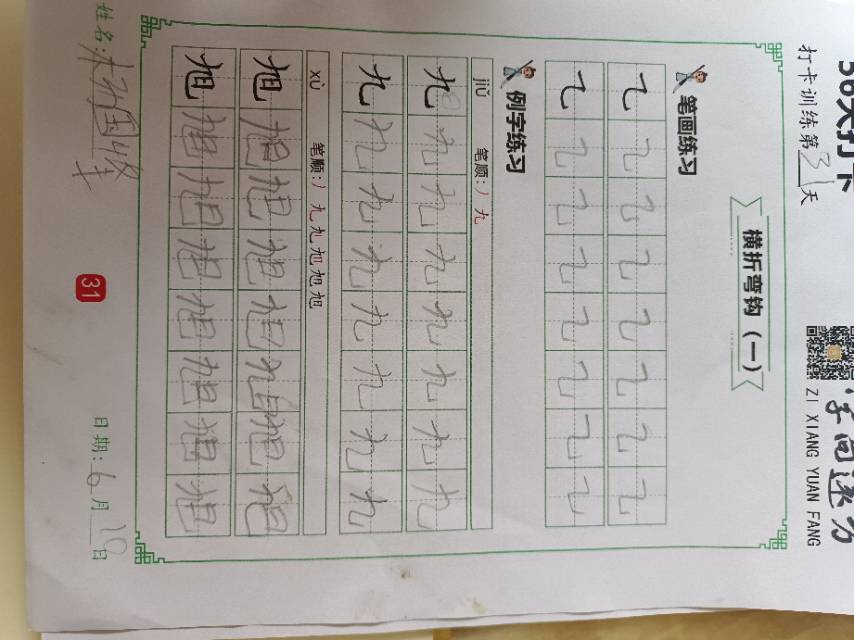 打卡训练第31天
字向远方
ZI XIANG YUAN FANG
横折弯钩（一）
笔画练习
㇈ ㇈ ㇈ ㇈ ㇈ ㇈ ㇈ ㇈
㇈ ㇈ ㇈ ㇈ ㇈ ㇈ ㇈ ㇈
例字练习
jiǔ 笔顺：丿 九
九 九 九 九 九 九 九 九
九 九 九 九 九 九 九 九
xù 笔顺：丿 九 九 旭 旭 旭
旭 旭 旭 旭 旭 旭 旭 旭
旭 旭 旭 旭 旭 旭 旭 旭
姓名：
31
日期：6月10日